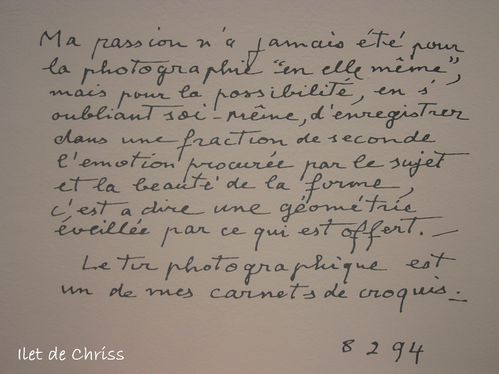 Ma passion n'a jamais été pour
la photographie "en elle même",
mais pour la possibilité, en s'
oubliant soi-même, d'enregistrer
dans une fraction de seconde
l'emotion procurée par le sujet
et la beauté de la forme,
c'est a dire une géométrie
éveillée par ce qui est offert. —
Le tir photographique est
un de mes carnets de croquis. —
8 2 94
Ilet de Chriss